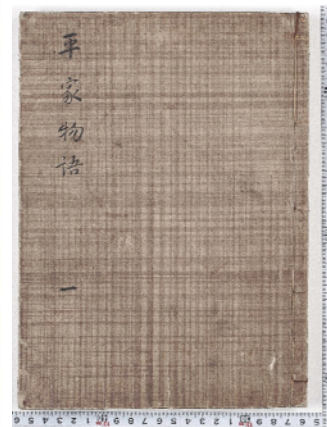 平家物語 一